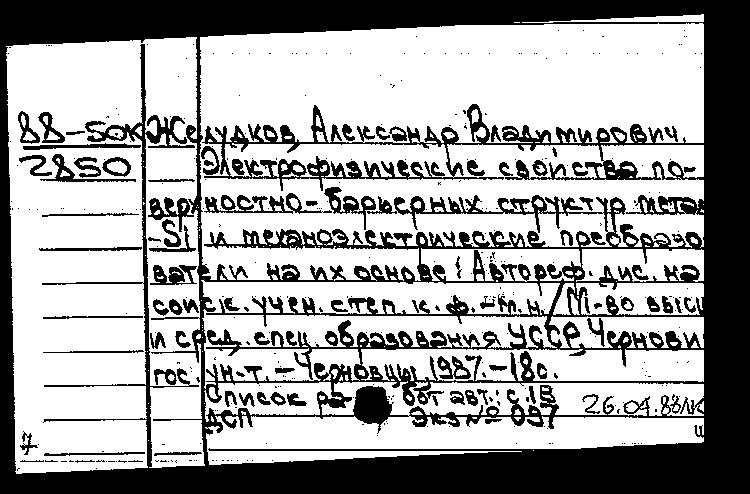 88-50К Желудков, Александр Владимирович.
2850 Электрофизические свойства по-
верхностно-барьерных структур мета
-Si и механоэлектрические преобразо
ватели на их основе: Автореф. дис. на
соиск. учен. степ. к. ф.-м. н. / М-во высш
и сред. спец. образования УССР, Чернови
гос. ун-т. - Черновцы, 1987. - 18 с.
Список ра- бот авт.: с. 18
ДСП Экз № 097 26.04.88
7